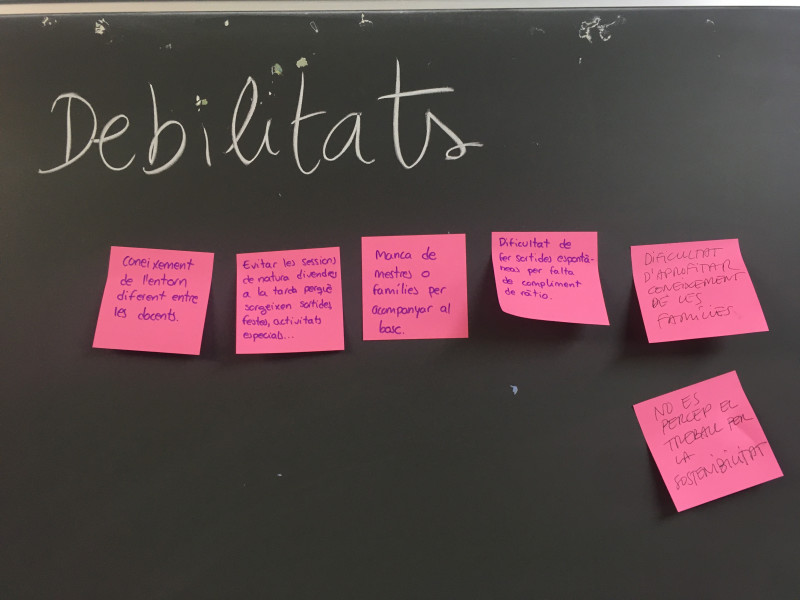 Debilitats
Coneixement
de l'entorn
diferent entre
les docents.
Evitar les sessions
de natura divendres
a la tarda perquè
sorgeixen sortides,
festes, activitats
especials...
Manca de
mestres o
famílies per
acompanyar al
bosc.
Dificultat de
fer sortides espontà-
nees per falta
de compliment
de ràtio.
DIFICULTAT
D'APROFITAR
CONEIXEMENT
DE LES
FAMÍLIES.
NO ES
PERCEP EL
TREBALL PER
LA
SOSTENIBILITAT